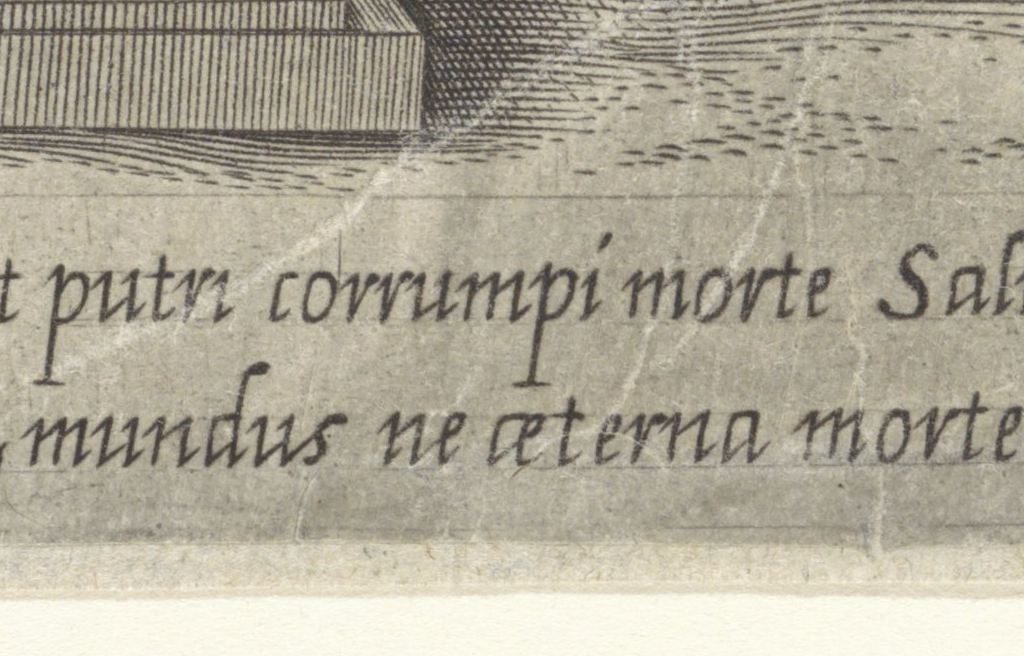 t putri corrumpi morte Sal
mundus ne æterna morte